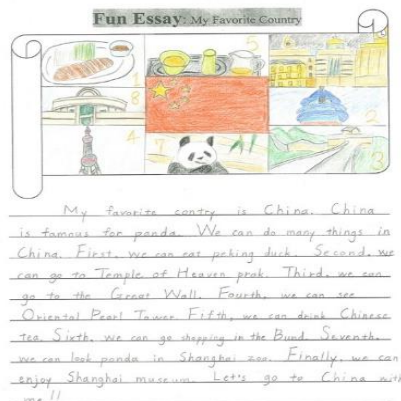 Fun Essay: My Favorite Country
1
5
6
8
2
4
7
3
My favorite contry is China. China
is famous for panda. We can do many things in
China. First, we can eat peking duck. Second, we
can go to Temple of Heaven prak. Third, we can
go to the Great Wall. Fourth, we can see
Oriental Pearl Tower. Fifth, we can drink Chinese
tea. Sixth, we can go shopping in the Bund. Seventh,
we can look panda in Shanghai zoo. Finally, we can
enjoy Shanghai museum. Let's go to China with
me!!